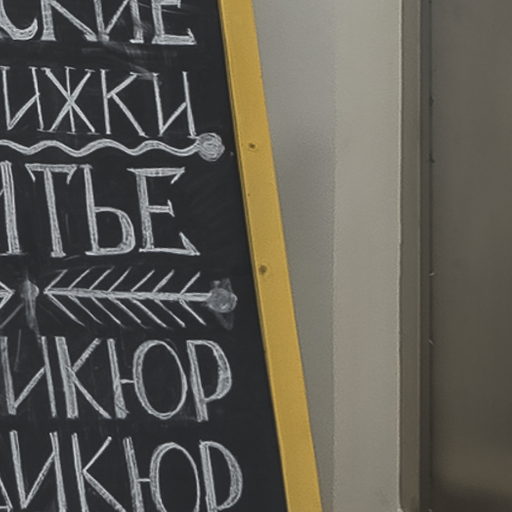 СКИЕ
ИЖКИ
ИТЬЕ
ИКЮР
ИКЮР